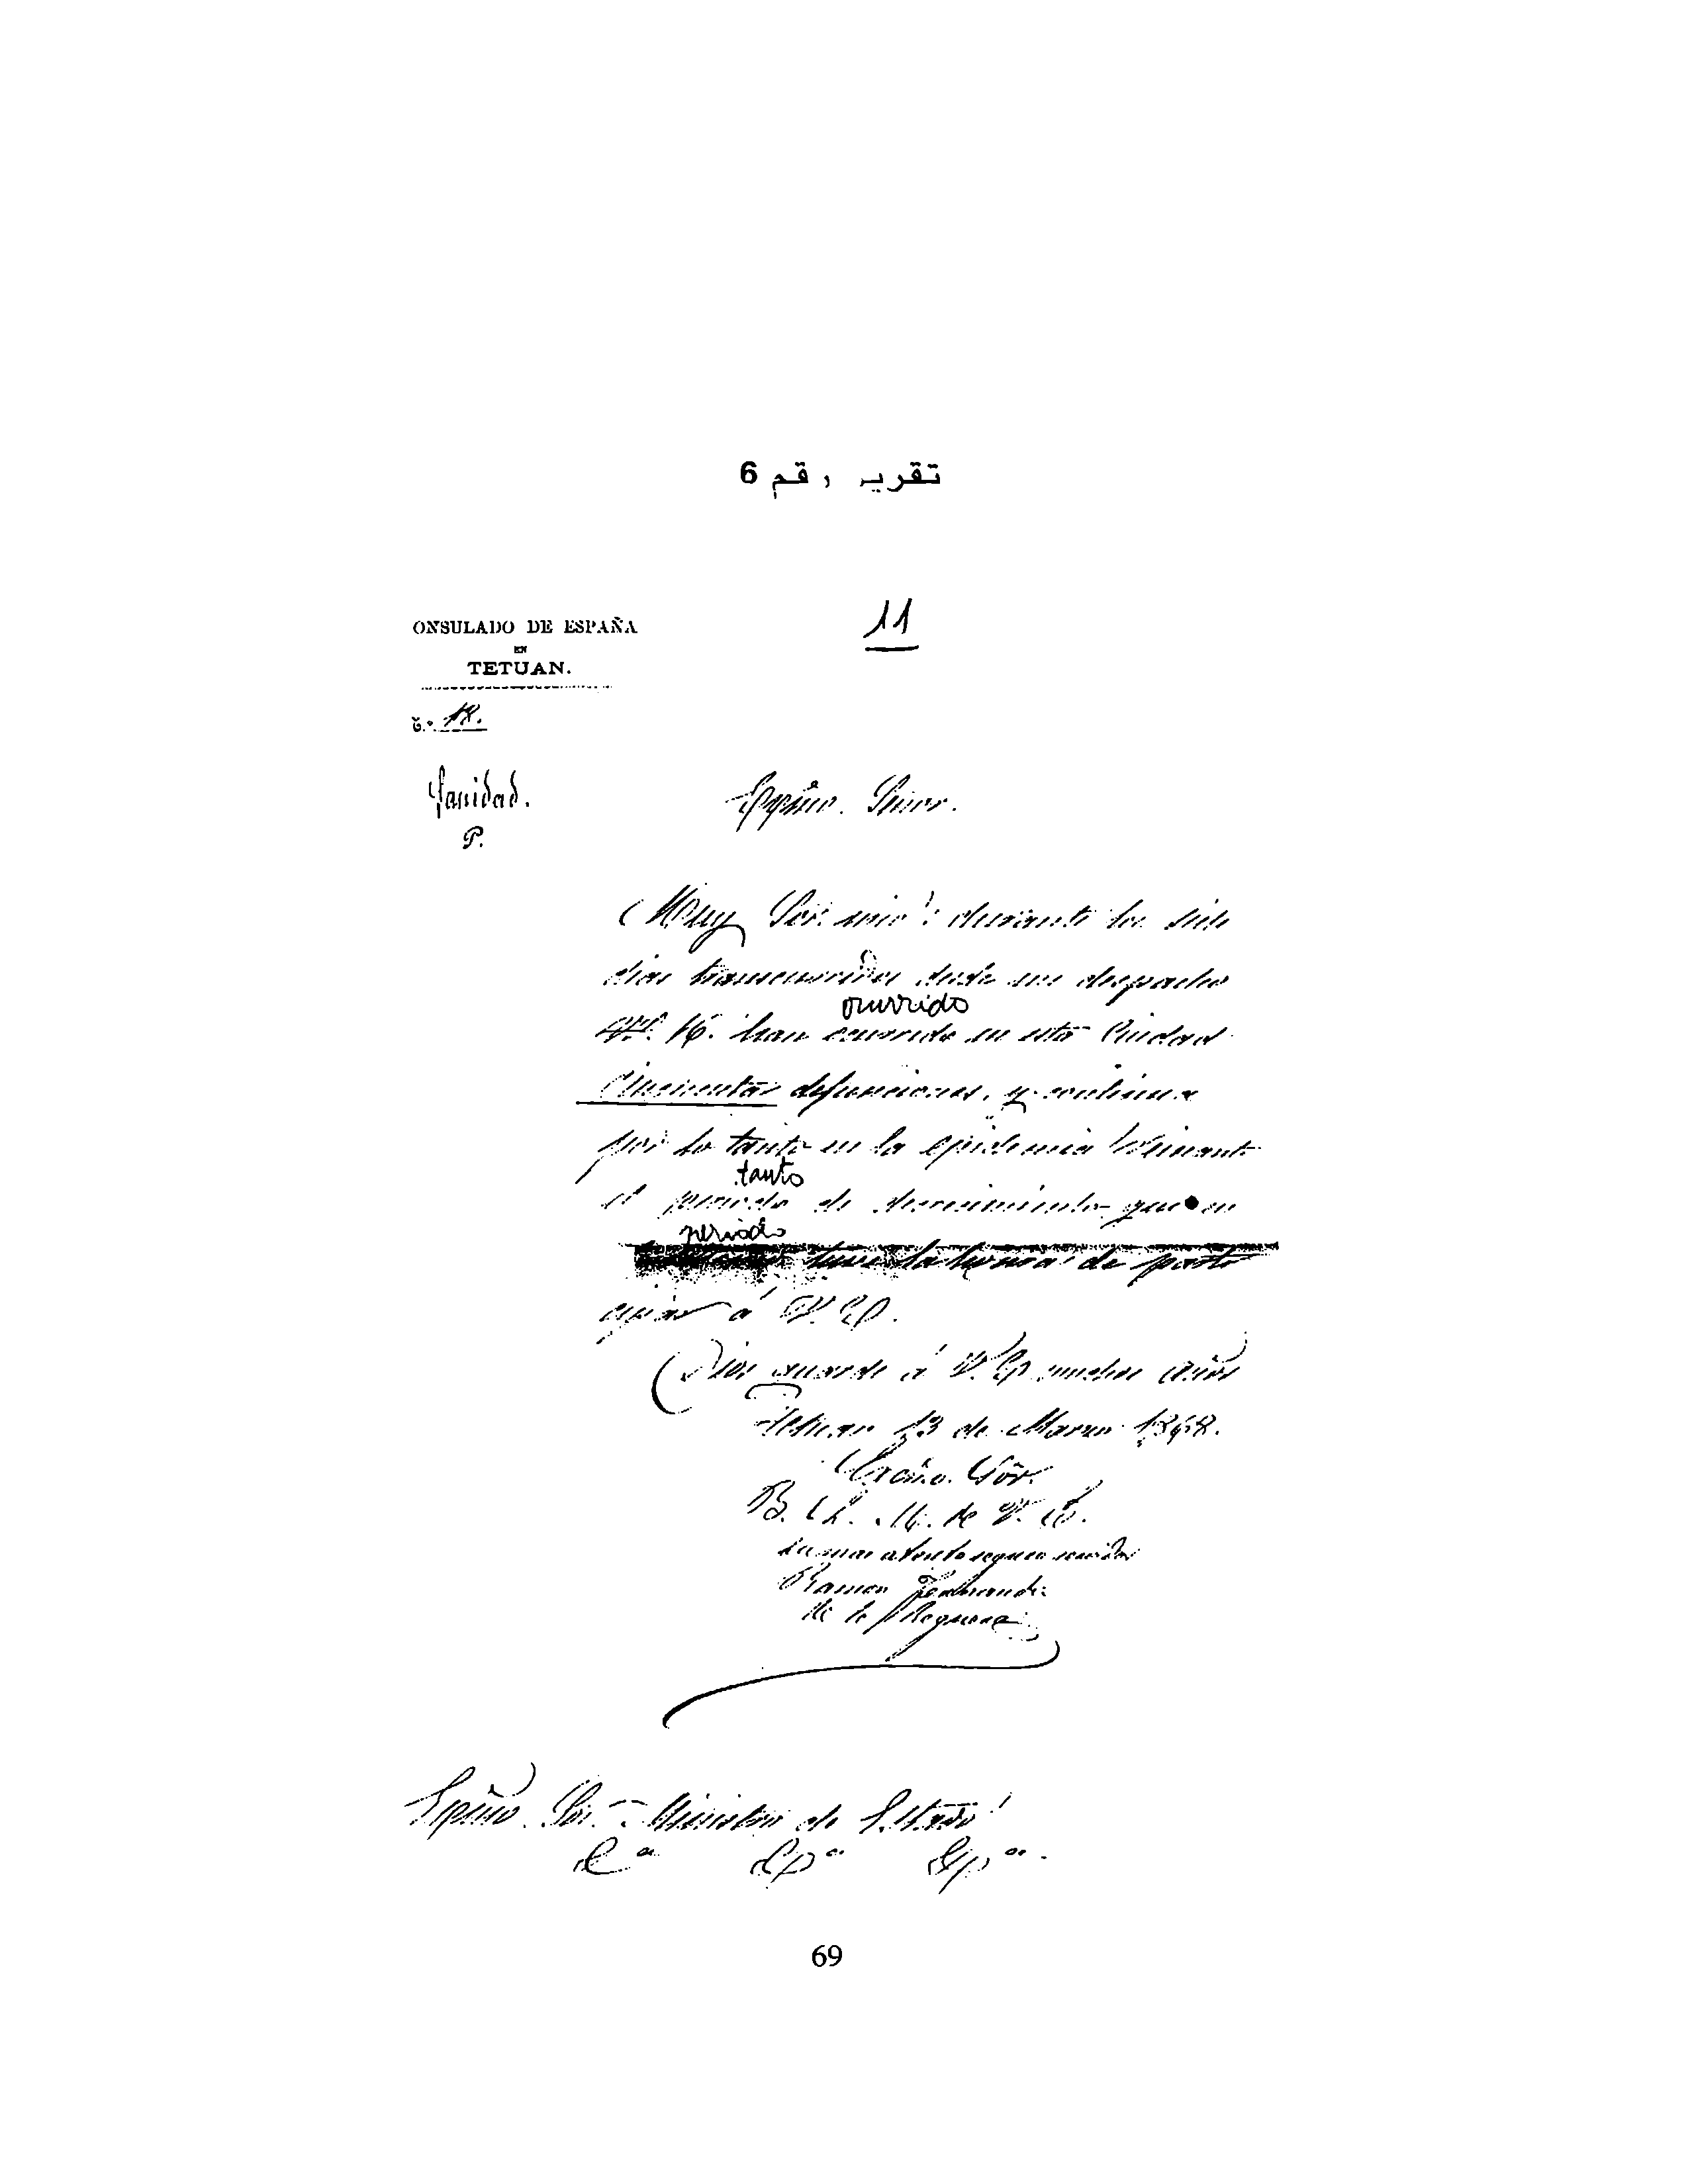 تقرير رقم 6
11
ONSULADO DE ESPAÑA
EN
TETUAN.
18.
Sanidad.
P.
Excmo. Señor.
Muy Sor. mio: durante los siete
dias transcurridos desde mi despacho
Nº. 16. han ocurrido en esta Ciudad
ocurrido
cincuenta defunciones, y continua
por lo tanto en la epidemia
tanto
el periodo de decrecimiento que en
periodo
tuve la honra de parti
cipar á V. E.
Dios guarde á V. E. muchos años
Tetuan 13 de Marzo
Excmo. Sor.
B. L. M. de V. E.
su mas atento seguro servidor
Ramon
de la Reguera
Excmo. Sor. Ministro de Estado
69